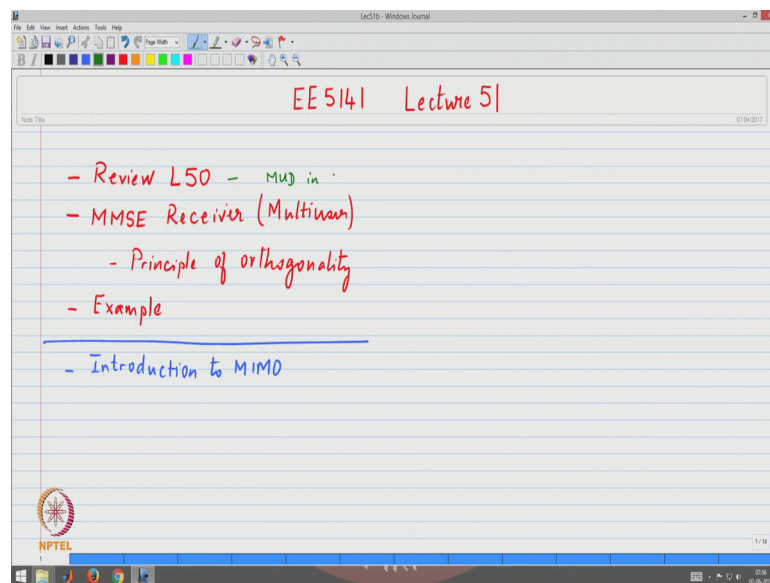 Lec51b - Windows Journal
File Edit View Insert Actions Tools Help
Page Width
B I
EE 5141 Lecture 51
Note Title
07-04-2017
- Review L50 - MUD in
- MMSE Receiver (Multiuser)
- Principle of orthogonality
- Example
- Introduction to MIMO
NPTEL
1
1/14
07:56